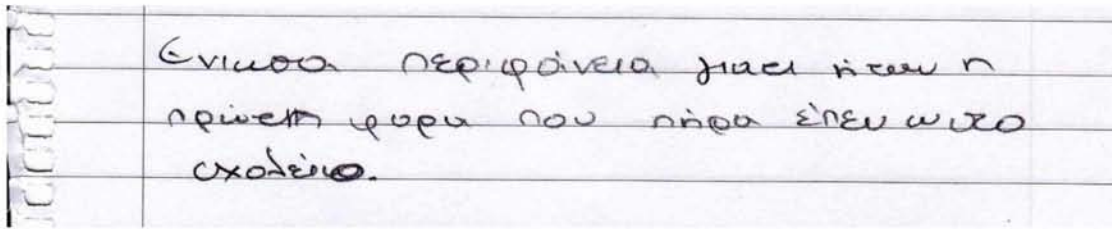 Ενιωσα περιφάνεια γιατι ήταν η
πρώτη φορα που πήρα έπεν ω στο
σχολείο.